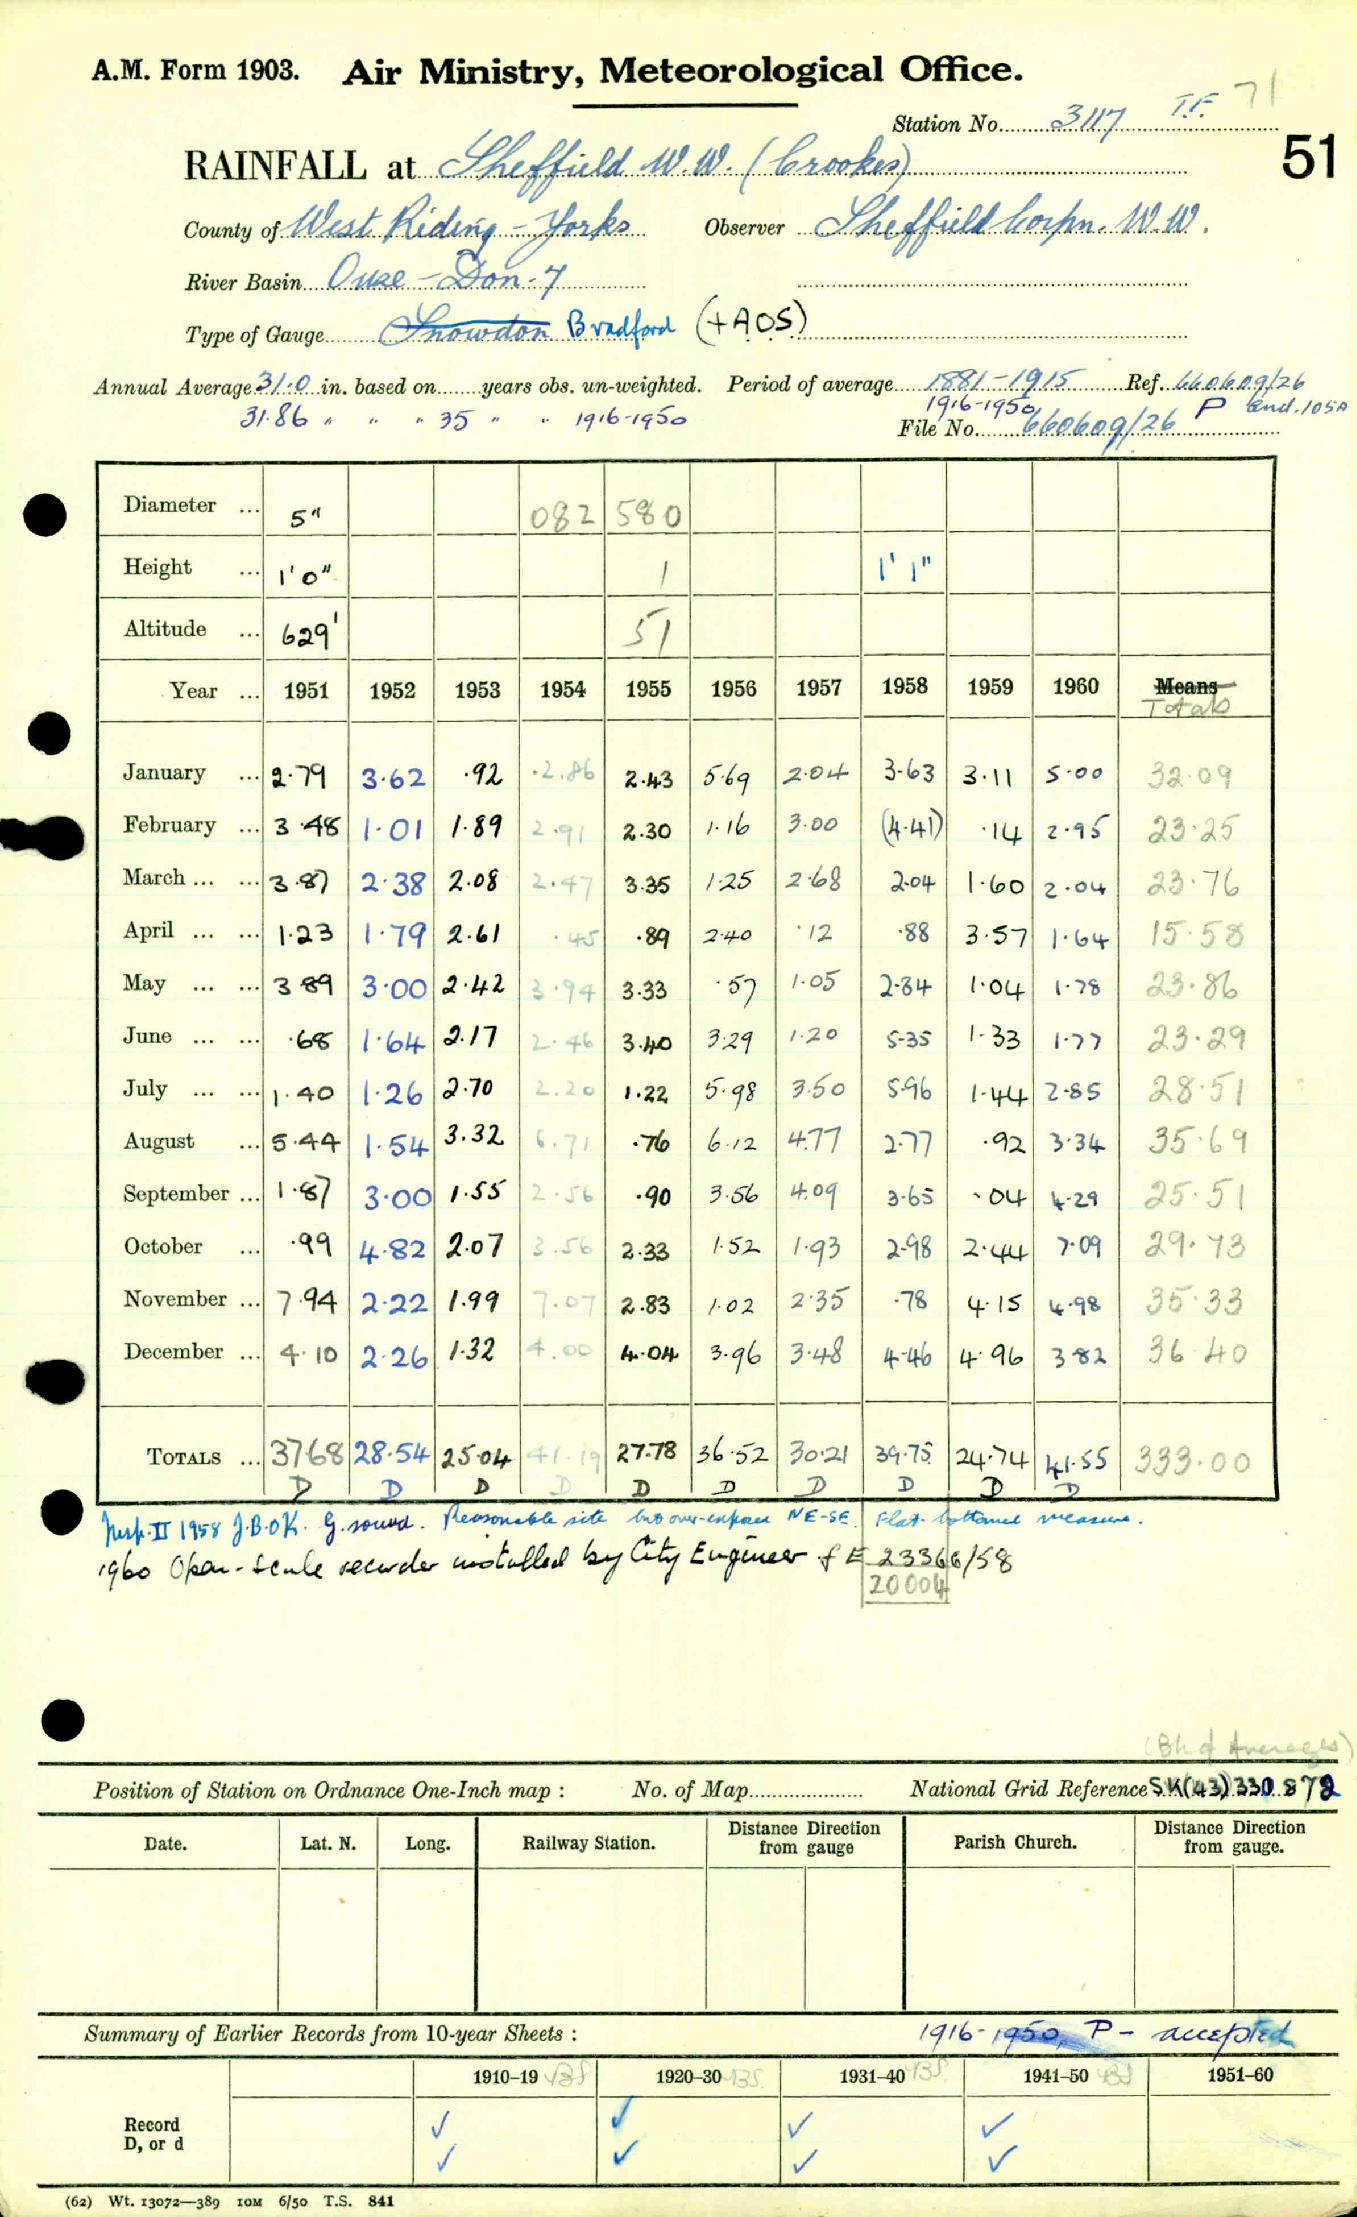 A.M. Form 1903. Air Ministry, Meteorological Office.
Station No. 3117 T.F. 71
51
RAINFALL at Sheffield W.W. (Crookes)
County of West Riding - Yorks Observer Sheffield Corpn. W.W.
River Basin Ouse - Don - 7
Type of Gauge Snowdon Bradford (+AOS)
Annual Average 31.0 in. based on years obs. un-weighted. Period of average 1881-1915 Ref. 660609/26
31.86 " " " 35 " " 1916-1950 1916-1950 P End. 105A
File No. 660609/26
Diameter ... 5" 082 580
Height ... 1'0" 1 1'1"
Altitude ... 629' 51
Year ... 1951 1952 1953 1954 1955 1956 1957 1958 1959 1960 Means
Totals
January ... 2.79 3.62 .92 2.86 2.43 5.69 2.04 3.63 3.11 5.00 32.09
February ... 3.48 1.01 1.89 2.91 2.30 1.16 3.00 (4.41) .14 2.95 23.25
March ... ... 3.87 2.38 2.08 2.47 3.35 1.25 2.68 2.04 1.60 2.04 23.76
April ... ... 1.23 1.79 2.61 .45 .89 2.40 .12 .88 3.57 1.64 15.58
May ... ... 3.89 3.00 2.42 3.94 3.33 .57 1.05 2.84 1.04 1.78 23.86
June ... ... .68 1.64 2.17 2.46 3.40 3.29 1.20 5.35 1.33 1.77 23.29
July ... ... 1.40 1.26 2.70 2.20 1.22 5.98 3.50 5.96 1.44 2.85 28.51
August ... 5.44 1.54 3.32 6.71 .76 6.12 4.77 2.77 .92 3.34 35.69
September ... 1.87 3.00 1.55 2.56 .90 3.56 4.09 3.65 .04 4.29 25.51
October ... .99 4.82 2.07 3.56 2.33 1.52 1.93 2.98 2.44 7.09 29.73
November ... 7.94 2.22 1.99 7.07 2.83 1.02 2.35 .78 4.15 4.98 35.33
December ... 4.10 2.26 1.32 4.00 4.04 3.96 3.48 4.46 4.96 3.82 36.40
TOTALS ... 37.68 28.54 25.04 41.19 27.78 36.52 30.21 39.75 24.74 41.55 333.00
D D D D D D D D D D
Insp. II 1958 J.B. OK. G. sound. Reasonable site but over-exposed NE-SE. Flat-bottomed measure.
1960 Open-scale recorder installed by City Engineer f E 23366/58
20004
(Bk of Averages)
Position of Station on Ordnance One-Inch map : No. of Map National Grid Reference SK(43) 330 872
Date. Lat. N. Long. Railway Station. Distance from Direction gauge Parish Church. Distance from Direction gauge.
Summary of Earlier Records from 10-year Sheets : 1916-1950, P - accepted
1910–19 1920–30 1931–40 1941–50 1951–60
Record ✓ ✓ ✓ ✓
D, or d ✓ ✓ ✓ ✓
(62) Wt. 13072—389 10M 6/50 T.S. 841